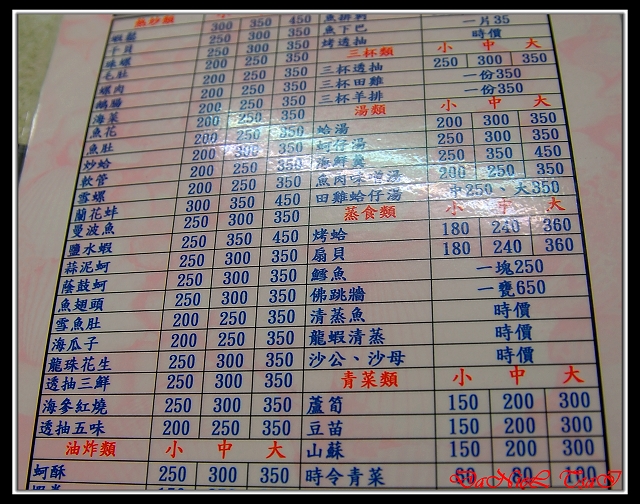 熱炒類 小
蝦鬆 300 350
干貝 300 350 450
珠螺 200 300 350
毛肚 200 250 350
螺肉 200 250 350
鵝腸 200 250 350
海菜 200 250 350
魚花 200 250 350
魚肚 200 250 350
炒蛤 200 300 350
軟管 200 250 350
雪螺 200 250 350
蘭花蚌 300 350 450
曼波魚 250 300 350
鹽水蝦 250 350 450
蒜泥蚵 250 300 350
蔭鼓蚵 250 300 350
魚翅頭 250 300 350
雪魚肚 200 250 350
海瓜子 200 250 350
龍珠花生 250 300 350
透抽三鮮 250 300 350
海參紅燒 250 300 350
透抽五味 200 250 350
油炸類 小 中 大
蚵酥 250 300 350
魚排刺 一片35
魚下巴 時價
烤透抽 小 中 大
三杯類 250 300 350
三杯透抽
三杯田雞 一份350
三杯羊排 一份350
湯類 小 中 大
蛤湯 200 300 350
蚵仔湯 250 300 350
海鮮羹 250 350 450
魚肉味噌湯 200 250 350
田雞蛤仔湯 中250、大350
蒸食類 小 中 大
烤蛤 180 240 360
扇貝 180 240 360
鱈魚 一塊250
佛跳牆 一甕650
清蒸魚 時價
龍蝦清蒸 時價
沙公、沙母 時價
青菜類 小 中 大
蘆筍 150 200 300
豆苗 150 200 300
山蘇 150 200 300
時令青菜 60 80 100
DaNieL TsaI